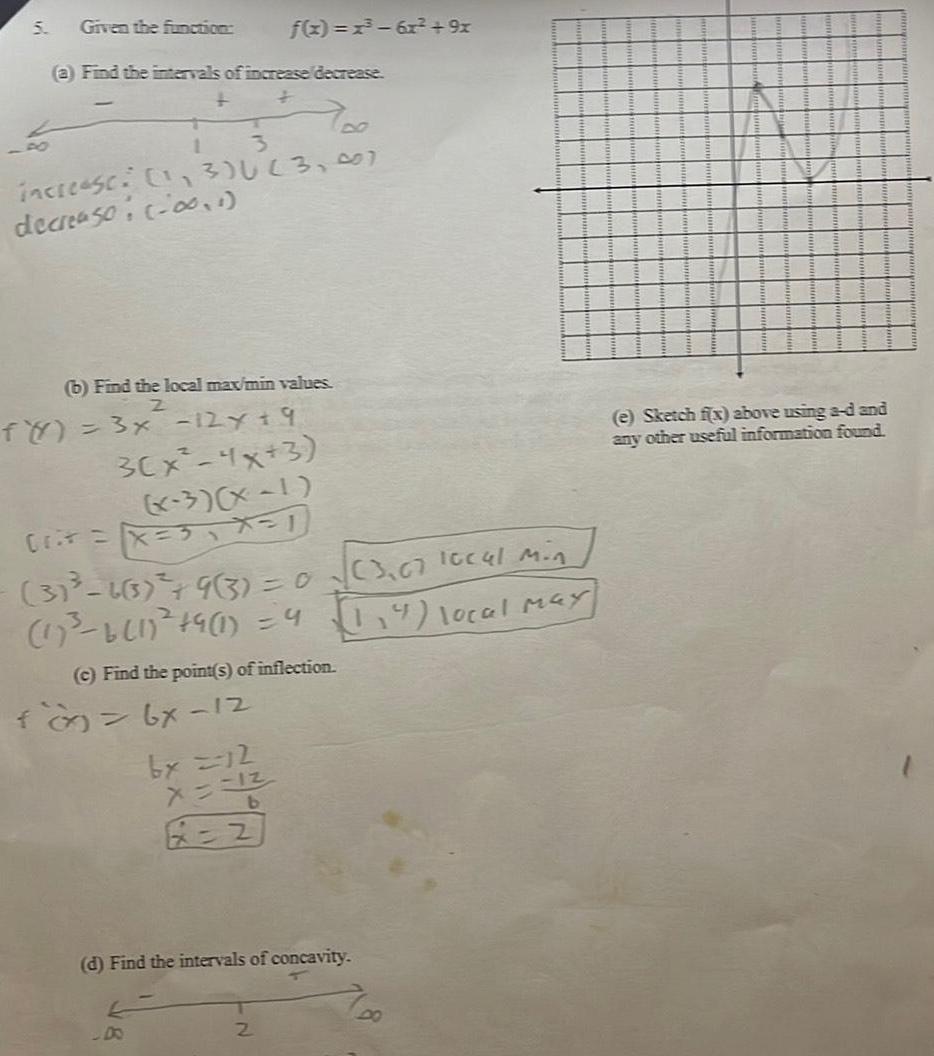 5. Given the function: f(x) = x³ – 6x² + 9x
(a) Find the intervals of increase/decrease.
– + +
-∞ 1 3 ∞
increase: (1, 3) ∪ (3, ∞)
decrease: (-∞, 1)
(b) Find the local max/min values.
f'(x) = 3x² - 12x + 9
3(x² - 4x + 3)
(x-3)(x-1)
crit = x = 3, x = 1
(3)³ - 6(3)² + 9(3) = 0 (3,0) local min
(1)³ - 6(1)² + 9(1) = 4 (1,4) local max
(c) Find the point(s) of inflection.
f''(x) = 6x - 12
6x = -12
x = -12/6
x = 2
(d) Find the intervals of concavity.
– +
-∞ 2 ∞
(e) Sketch f(x) above using a-d and
any other useful information found.